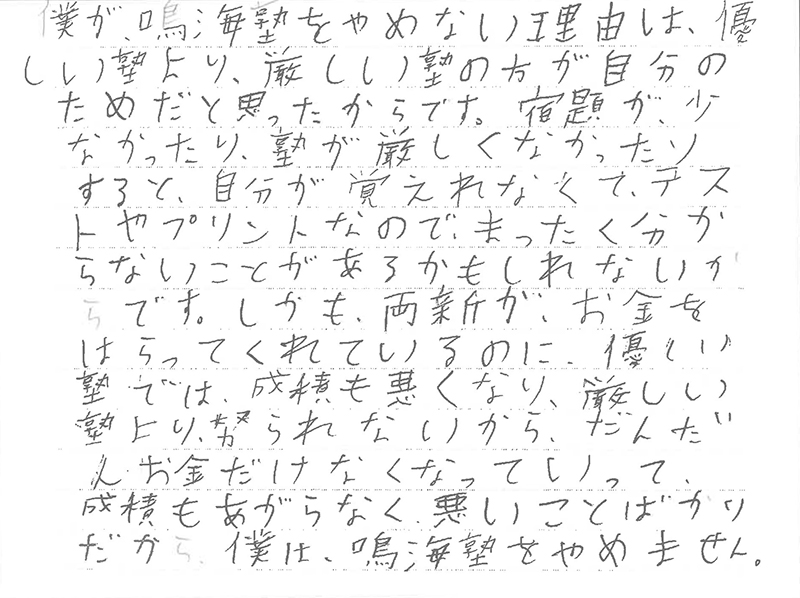 僕が、鳴海塾をやめない理由は、優
しい塾より、厳しい塾の方が自分の
ためだと思ったからです。宿題が、少
なかったり、塾が厳しくなかったり
すると、自分が覚えれなくて、テス
トやプリントなので、まったく分か
らないことがあるかもしれないか
らです。しかも、両新が、お金を
はらってくれているのに、優しい
塾では、成積も悪くなり、厳しい
塾より、努られないから、だんだ
んお金だけなくなっていって、
成積もあがらなく、悪いことばかり
だから、僕は、鳴海塾をやめません。